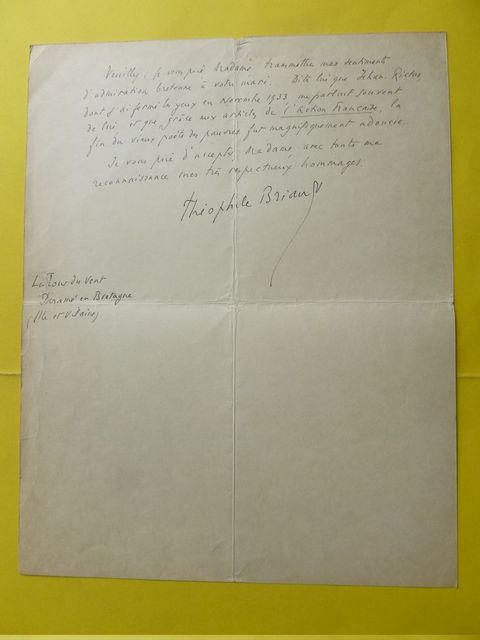 Veuillez, je vous prie Madame, transmettre mes sentiments
d'admiration bretonne à votre mari. Dites lui que Jehan Rictus
dont j'ai fermé les yeux en Novembre 1933 me parlait souvent
de lui et que, grâce aux articles de l'Action Française, la
fin du vieux poète des pauvres fut magnifiquement adoucie.
Je vous prie d'accepter, Madame avec toute ma
reconnaissance mes très respectueux hommages.
Théophile Briant
La Tour du Vent
Paramé en Bretagne
(Ille et Vilaine)